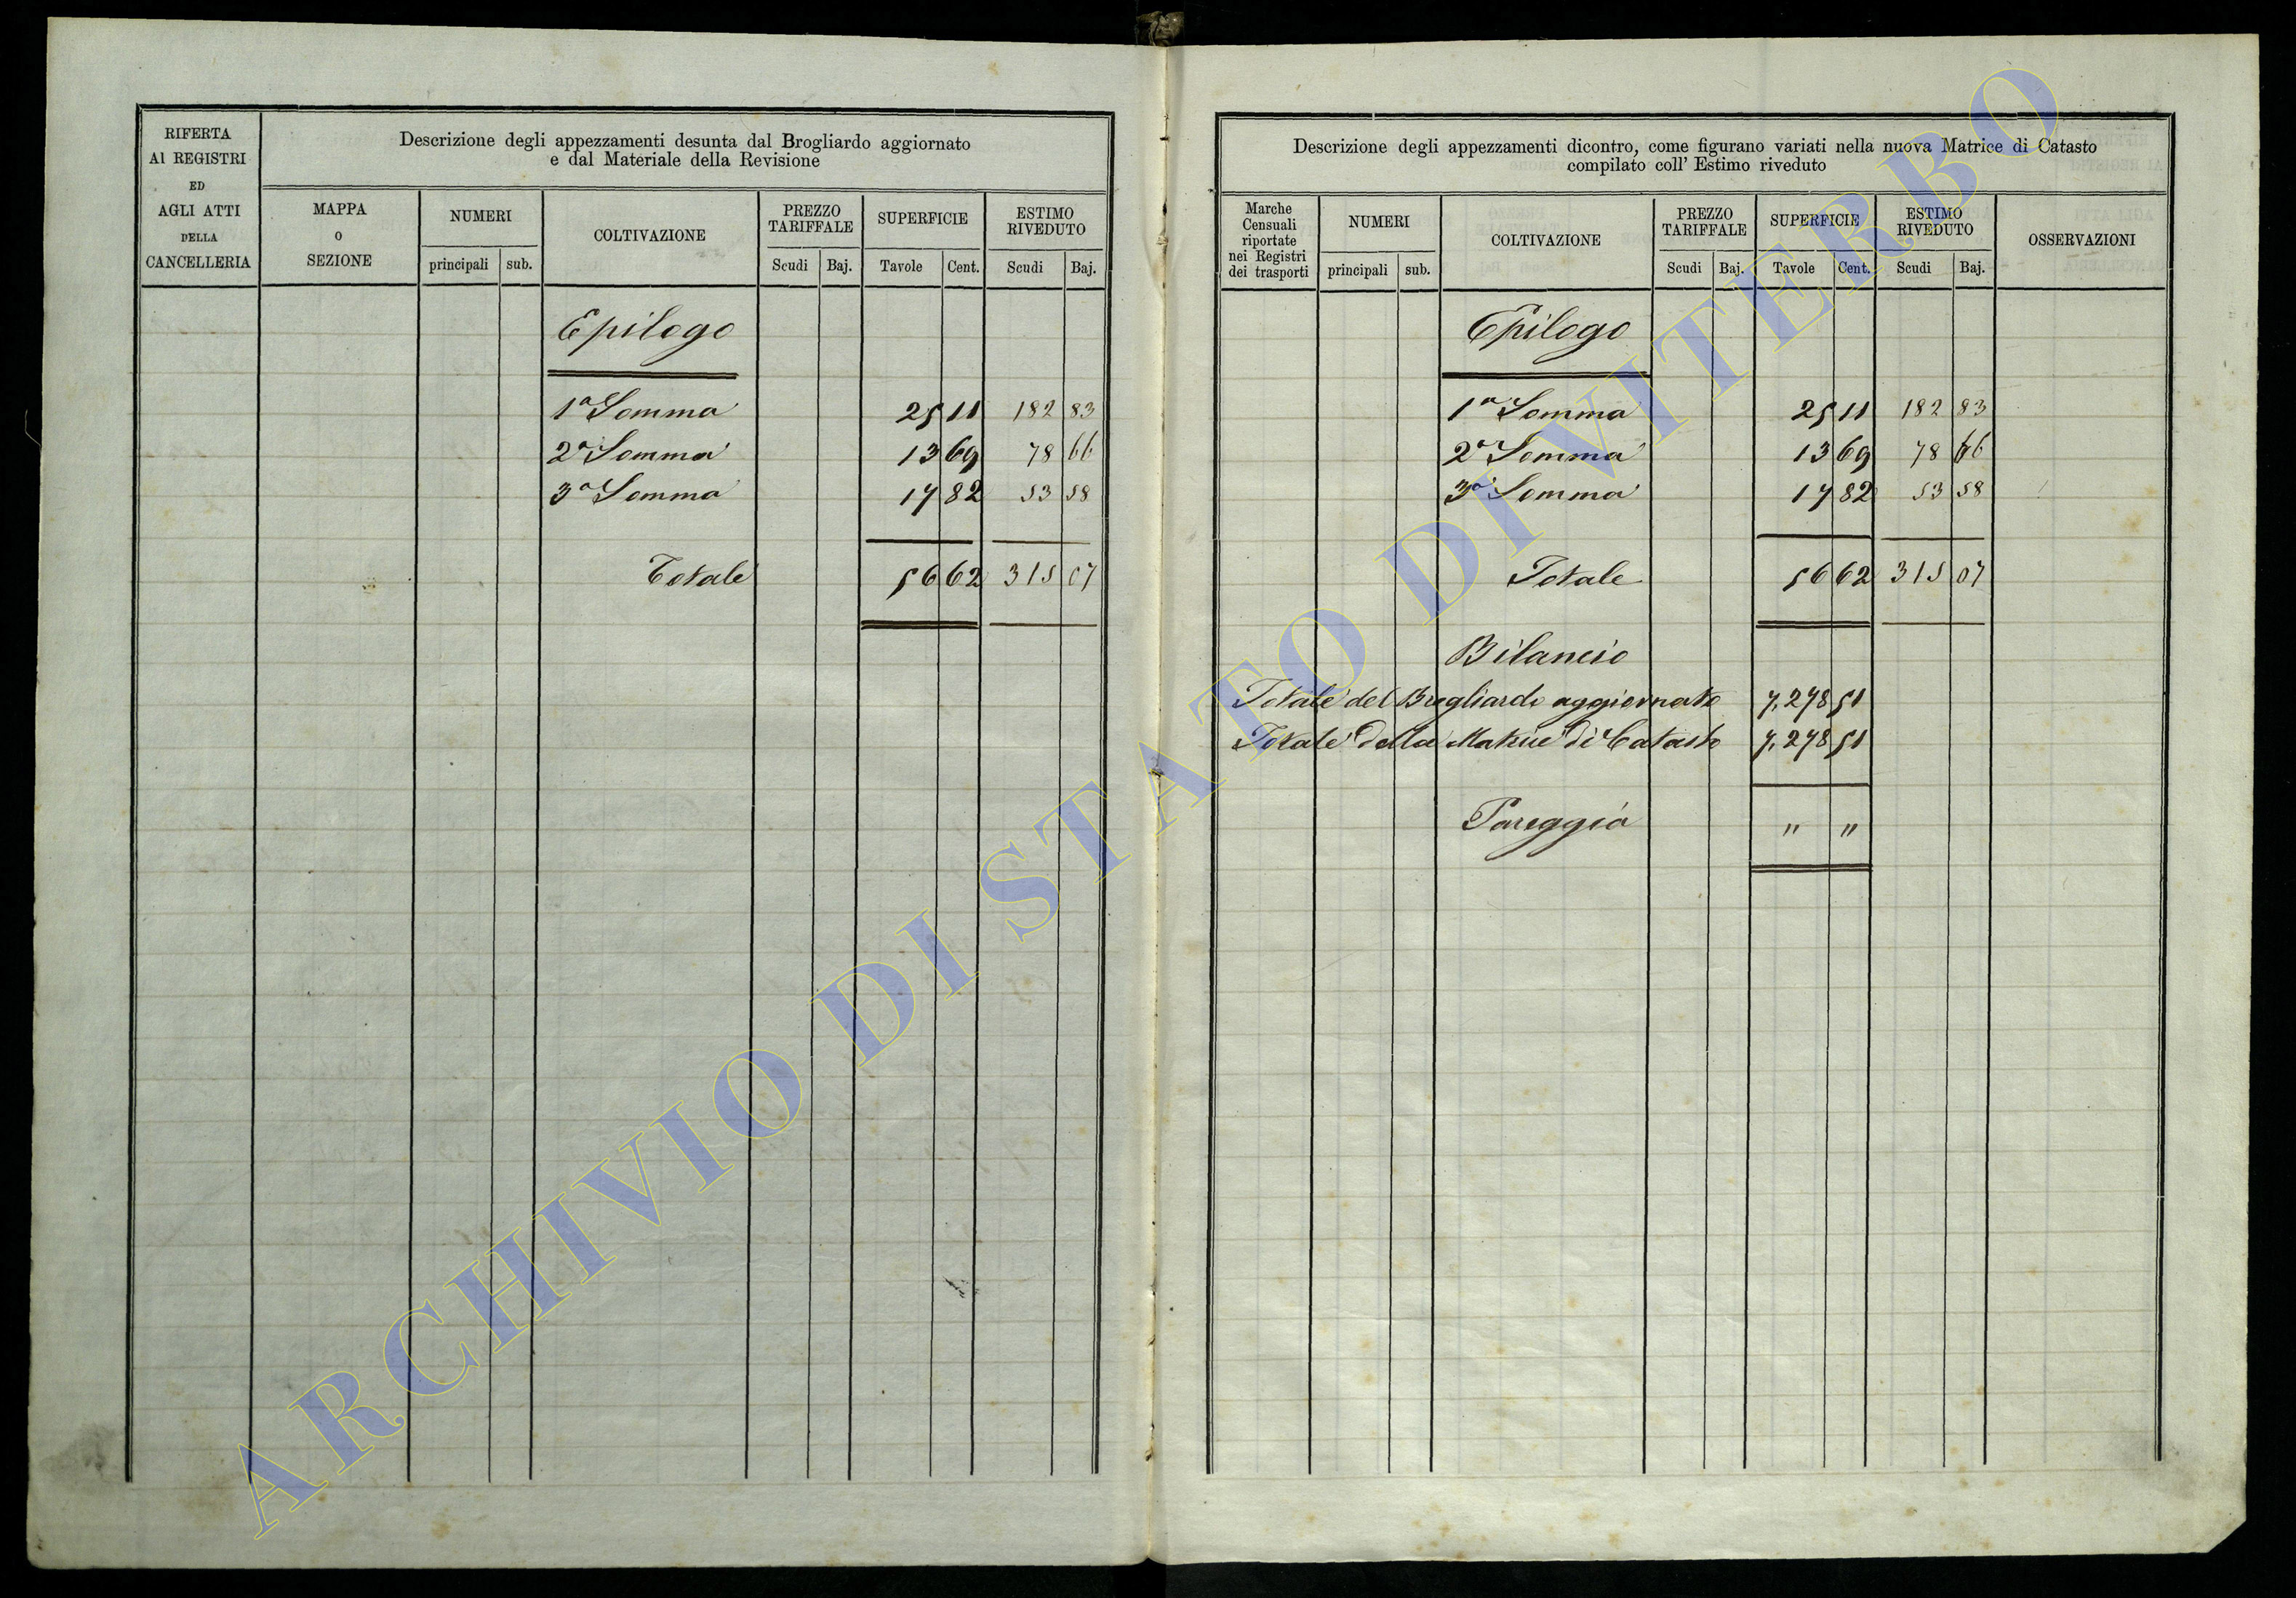 RIFERTA
AI REGISTRI
ED
AGLI ATTI
DELLA
CANCELLERIA
Descrizione degli appezzamenti desunta dal Brogliardo aggiornato
e dal Materiale della Revisione
MAPPA
O
SEZIONE
NUMERI
principali sub.
COLTIVAZIONE
PREZZO
TARIFFALE
Scudi Baj.
SUPERFICIE
Tavole Cent.
ESTIMO
RIVEDUTO
Scudi Baj.
Epilogo
1a Somma 25 11 182 83
2a Somma 13 69 78 66
3a Somma 17 82 53 58
Totale 56 62 315 07
Descrizione degli appezzamenti dicontro, come figurano variati nella nuova Matrice di Catasto
compilato coll' Estimo riveduto
Marche
Censuali
riportate
nei Registri
dei trasporti
NUMERI
principali sub.
COLTIVAZIONE
PREZZO
TARIFFALE
Scudi Baj.
SUPERFICIE
Tavole Cent.
ESTIMO
RIVEDUTO
Scudi Baj.
OSSERVAZIONI
Epilogo
1a Somma 25 11 182 83
2a Somma 13 69 78 66
3a Somma 17 82 53 58
Totale 56 62 315 07
Bilancio
Totale del Brogliardo aggiornato 7,278 51
Totale della Matrice di Catasto 7,278 51
Pareggia " "
ARCHIVIO DI STATO DI VITERBO